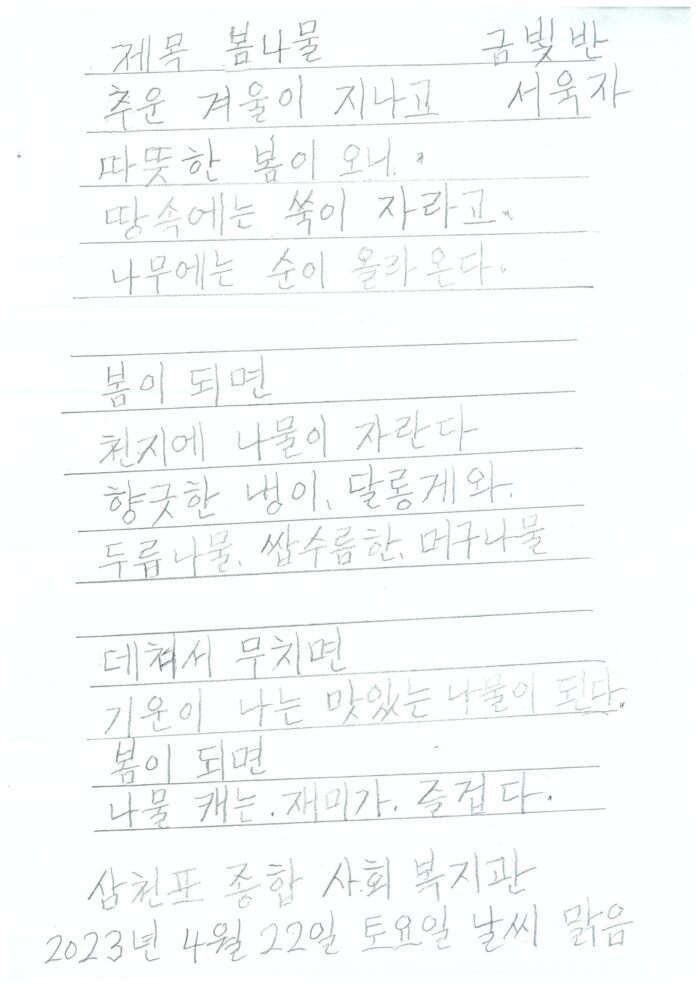 제목 봄나물 금빛반
추운 겨울이 지나고 서욱자
따뜻한 봄이 오니.
땅속에는 쑥이 자라고.
나무에는 순이 올라온다.
봄이 되면
천지에 나물이 자란다
향긋한 냉이, 달롱게와,
두릅나물, 쌉수름한, 머구나물
데쳐서 무치면
기운이 나는 맛있는 나물이 된다.
봄이 되면
나물 캐는. 재미가. 즐겁다.
삼천포 종합 사회 복지관
2023년 4월 22일 토요일 날씨 맑음